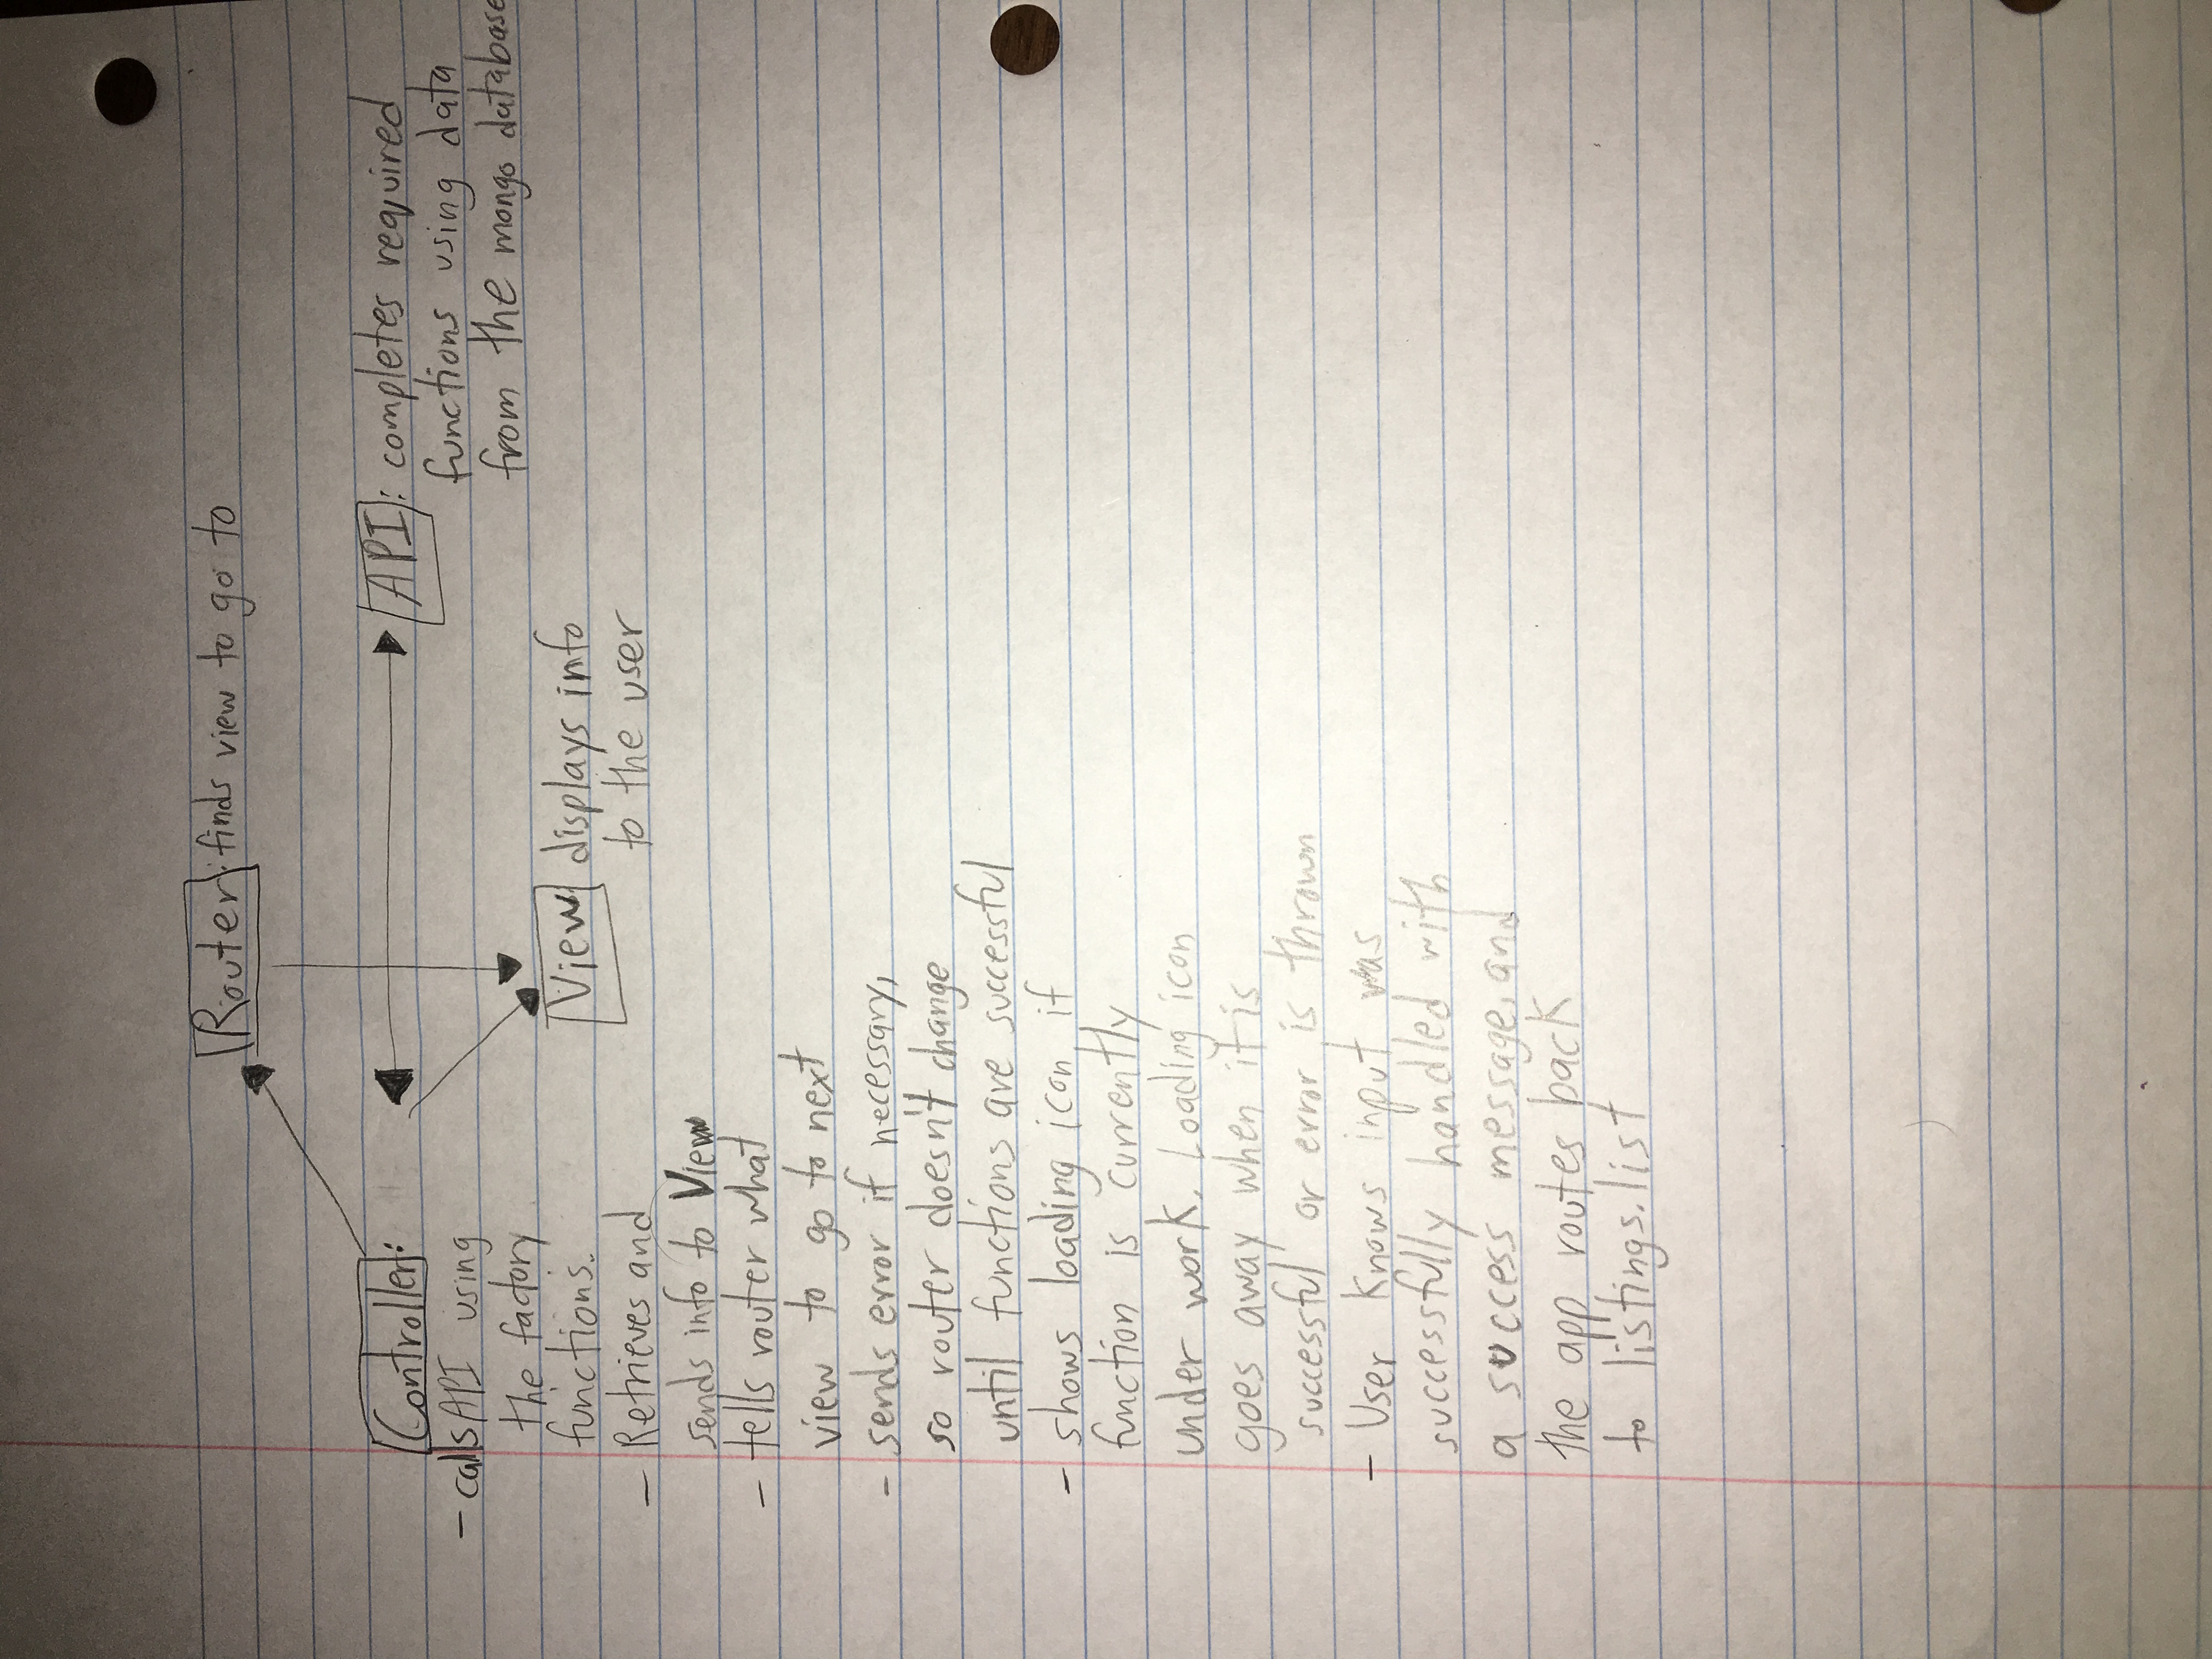 Router: finds view to go to
Controller:
- calls API using
the factory
functions.
- Retrieves and
sends info to View
- tells router what
view to go to next
- sends error if necessary,
so router doesn't change
until functions are successful
- shows loading icon if
function is currently
under work. Loading icon
goes away when it is
successful or error is thrown
- User knows input was
successfully handled with
a success message, and
the app routes back
to listings.list
API: completes required
functions using data
from the mongo database
View displays info
to the user